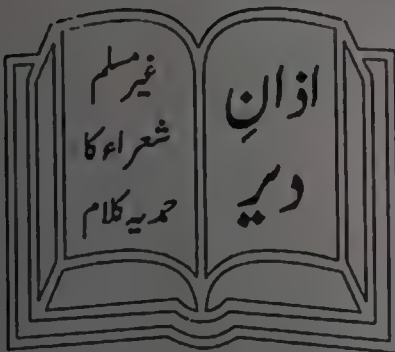 اذانِ
دیر
غیر مسلم
شعراء کا
حمدیہ کلام